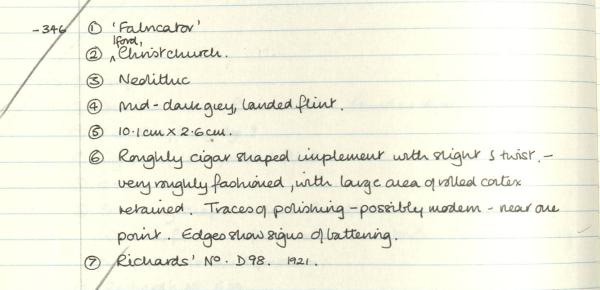 -346 ① 'Fabricator'
Iford,
② ^ Christchurch.
③ Neolithic
④ Mid-dark grey, banded flint.
⑤ 10.1cm X 2.6cm.
⑥ Roughly cigar shaped implement with slight S twist. -
very roughly fashioned, with large area of rolled cortex
retained. Traces of polishing - possibly modern - near one
point. Edges show signs of battering.
⑦ Richards' No. D98. 1921.